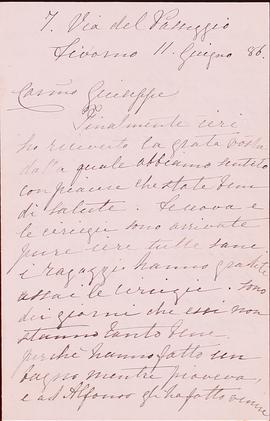 7. Via del Passeggio
Livorno 11. Giugno 86.
Carmo Giuseppe
Finalmente ieri
ho ricevuto la grata vostra
dalla quale abbiamo sentito
con piacere che state bene
di salute. Le uova e
le ciriegie sono arrivate
pure ieri tutte sane
i ragazzi hanno gradite
assai le ciriegie. Sono
dei giorni che essi non
stanno tanto bene
perchè hanno fatto un
bagno mentre pioveva,
e ad Alfonso gli ha fatto venire